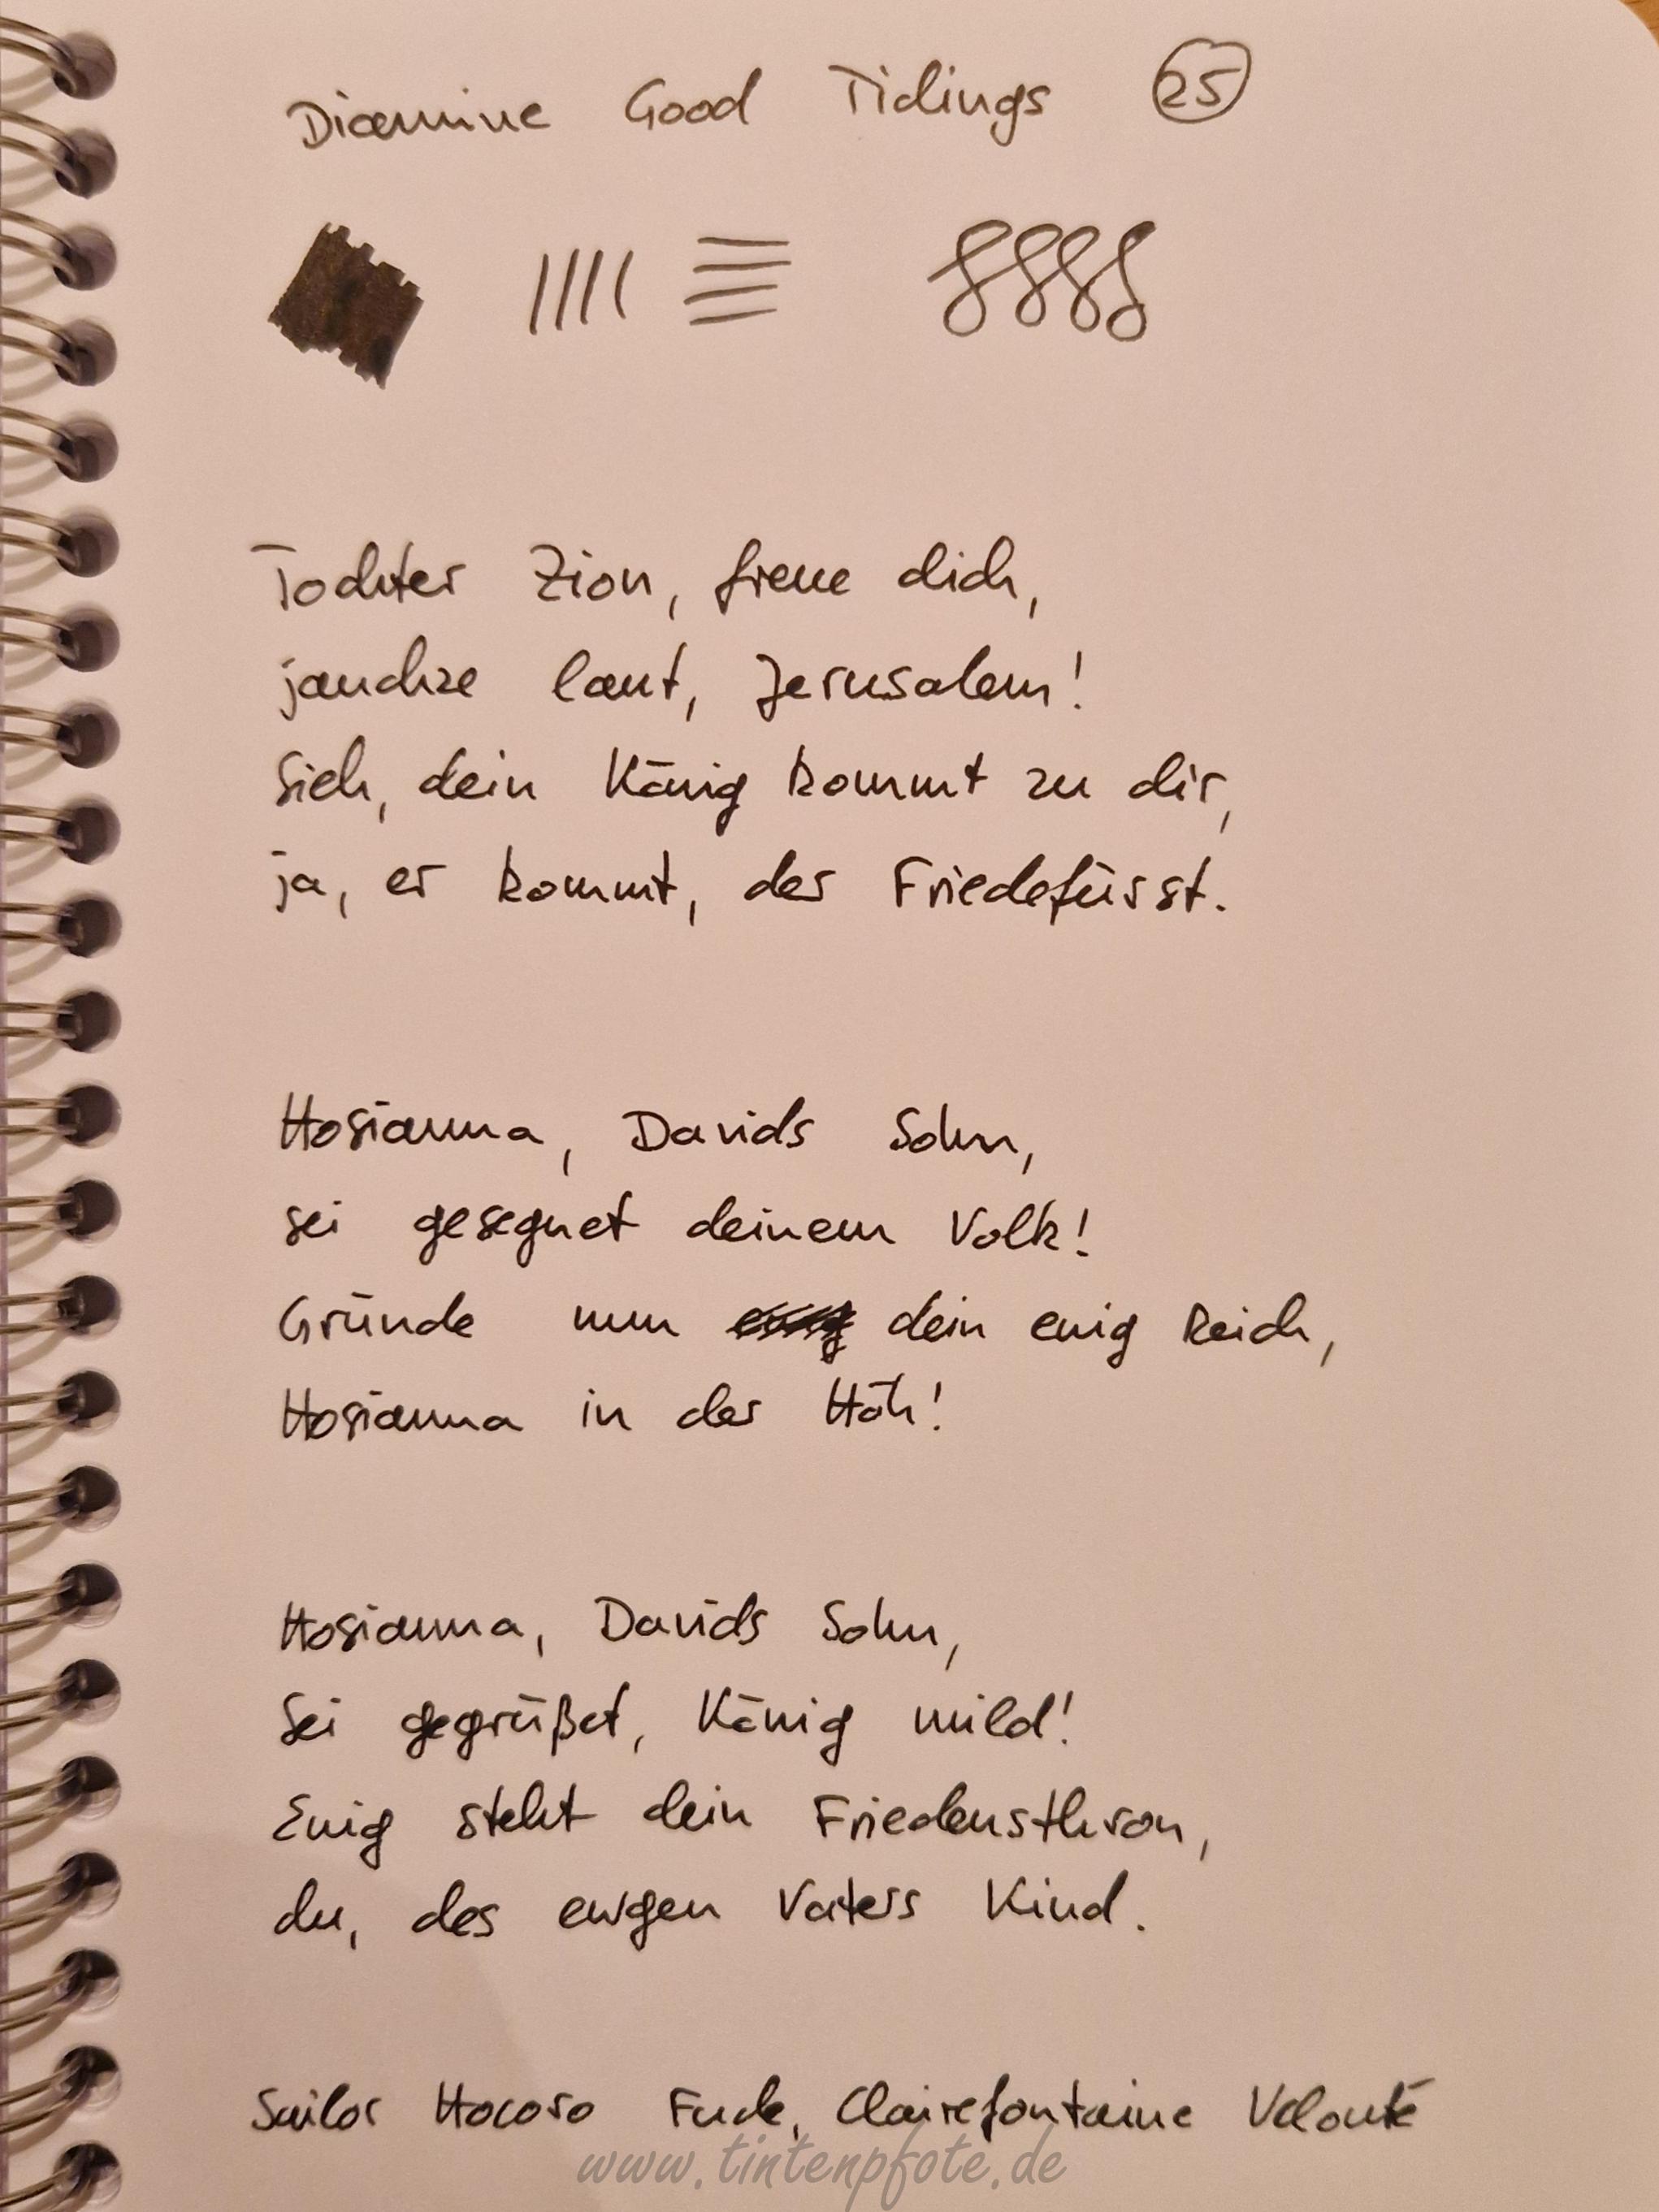 Diamine Good Tidings 25
Tochter Zion, freue dich,
jauchze laut, Jerusalem!
Sieh, dein König kommt zu dir,
ja, er kommt, der Friedefürst.
Hosianna, Davids Sohn,
sei gesegnet deinem Volk!
Gründe nun dein ewig Reich,
Hosianna in der Höh!
Hosianna, Davids Sohn,
Sei gegrüßet, König mild!
Ewig steht dein Friedensthron,
du, des ewgen Vaters Kind.
Sailor Hocoro Fude, Clairefontaine Velouté
www.tintenpfote.de